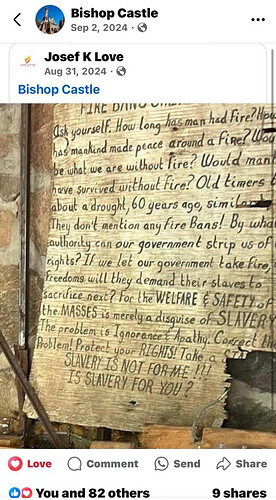 Bishop Castle
Sep 2, 2024 ·
Josef K Love
Aug 31, 2024 ·
Bishop Castle
FIRE BANS
Ask yourself. How long has man had Fire? How
has mankind made peace around a Fire? Wou
be what we are without fire? Would man
have survived without fire? Old timers
about a drought, 60 years ago, similar
They don't mention any Fire Bans! By what
authority can our government strip us of
rights? If we let our government take Fire
Freedoms will they demand their slaves to
Sacrifice next? For the WELFARE & SAFETY of
the MASSES is merely a disguise of SLAVERY
The problem is Ignorance & Apathy. Correct the
Problem! Protect your RIGHTS! Take a
SLAVERY IS NOT FOR ME !!!
IS SLAVERY FOR YOU ?
Love
Comment
Send
Share
You and 82 others
9 shares